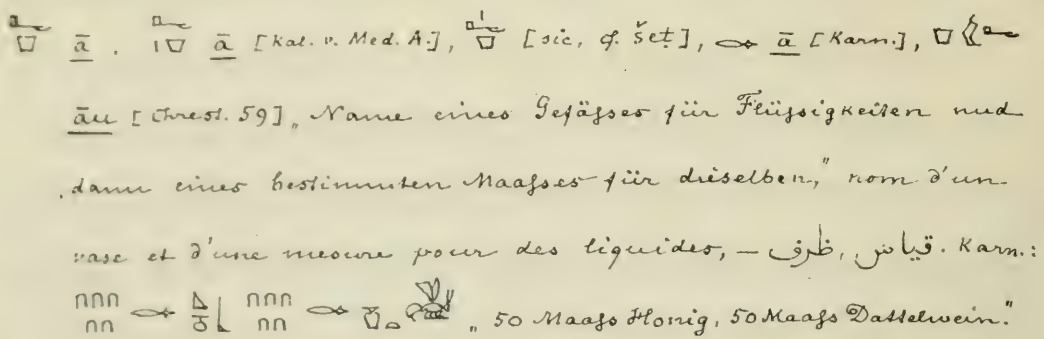 ā . ā [Kal. v. Med. A.], [sic, cf. šeṭ], ā [Karn.],
āu [Chrest. 59] „Name eines Gefäſses für Flüſsigkeiten und
dann eines bestimmten Maaſses für dieselben,“ nom d'un
vase et d'une mesure pour des liquides, – قياس , ظرف . Karn.:
„50 Maaſs Honig, 50 Maaſs Dattelwein.“